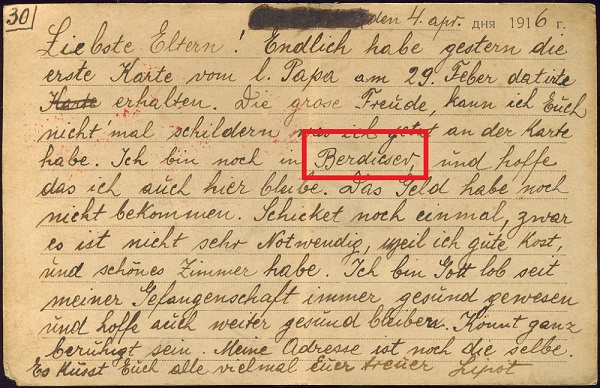 30 den 4. apr. дня 1916 г.
Liebste Eltern! Endlich habe gestern die
erste Karte vom l. Papa am 29. Feber datirte
Karte erhalten. Die grose Freude, kann ich Euch
nicht mal schildern was ich an der Karte
habe. Ich bin noch in Berdicsev, und hoffe
das ich auch hier bleibe. Das Geld habe noch
nicht bekommen. Schicket noch einmal, zwar
es ist nicht sehr Notwendig, weil ich gute Kost,
und schönes Zimmer habe. Ich bin Gott lob seit
meiner Gefangenschaft immer gesund gewesen
und hoffe auch weiter gesund bleiben. Könnt ganz
beruhigt sein. Meine Adresse ist noch die selbe.
Es Küsst Euch alle vielmal Euer treuer Lipot